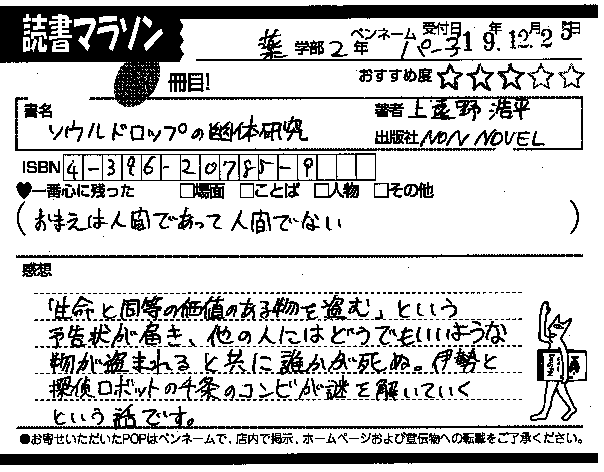 読書マラソン
薬 学部 2 年 ペンネーム パーユ 受付日 19年.12月.25日
冊目! おすすめ度 ☆☆☆☆☆
書名 ソウルドロップの幽体研究 著者 上遠野 浩平
出版社 NON NOVEL
ISBN 4-396-20785-9
♥一番心に残った □場面 □ことば □人物 □その他
(おまえは人間であって人間でない)
感想
「生命と同等の価値のある物を盗む」という
予告状が届き、他の人にはどうでもいいような
物が盗まれると共に誰かが死ぬ。伊勢と
探偵ロボットの千条のコンビが謎を解いていく
という話です。
●お寄せいただいたPOPはペンネームで、店内で掲示、ホームページおよび宣伝物への転載をご了承ください。